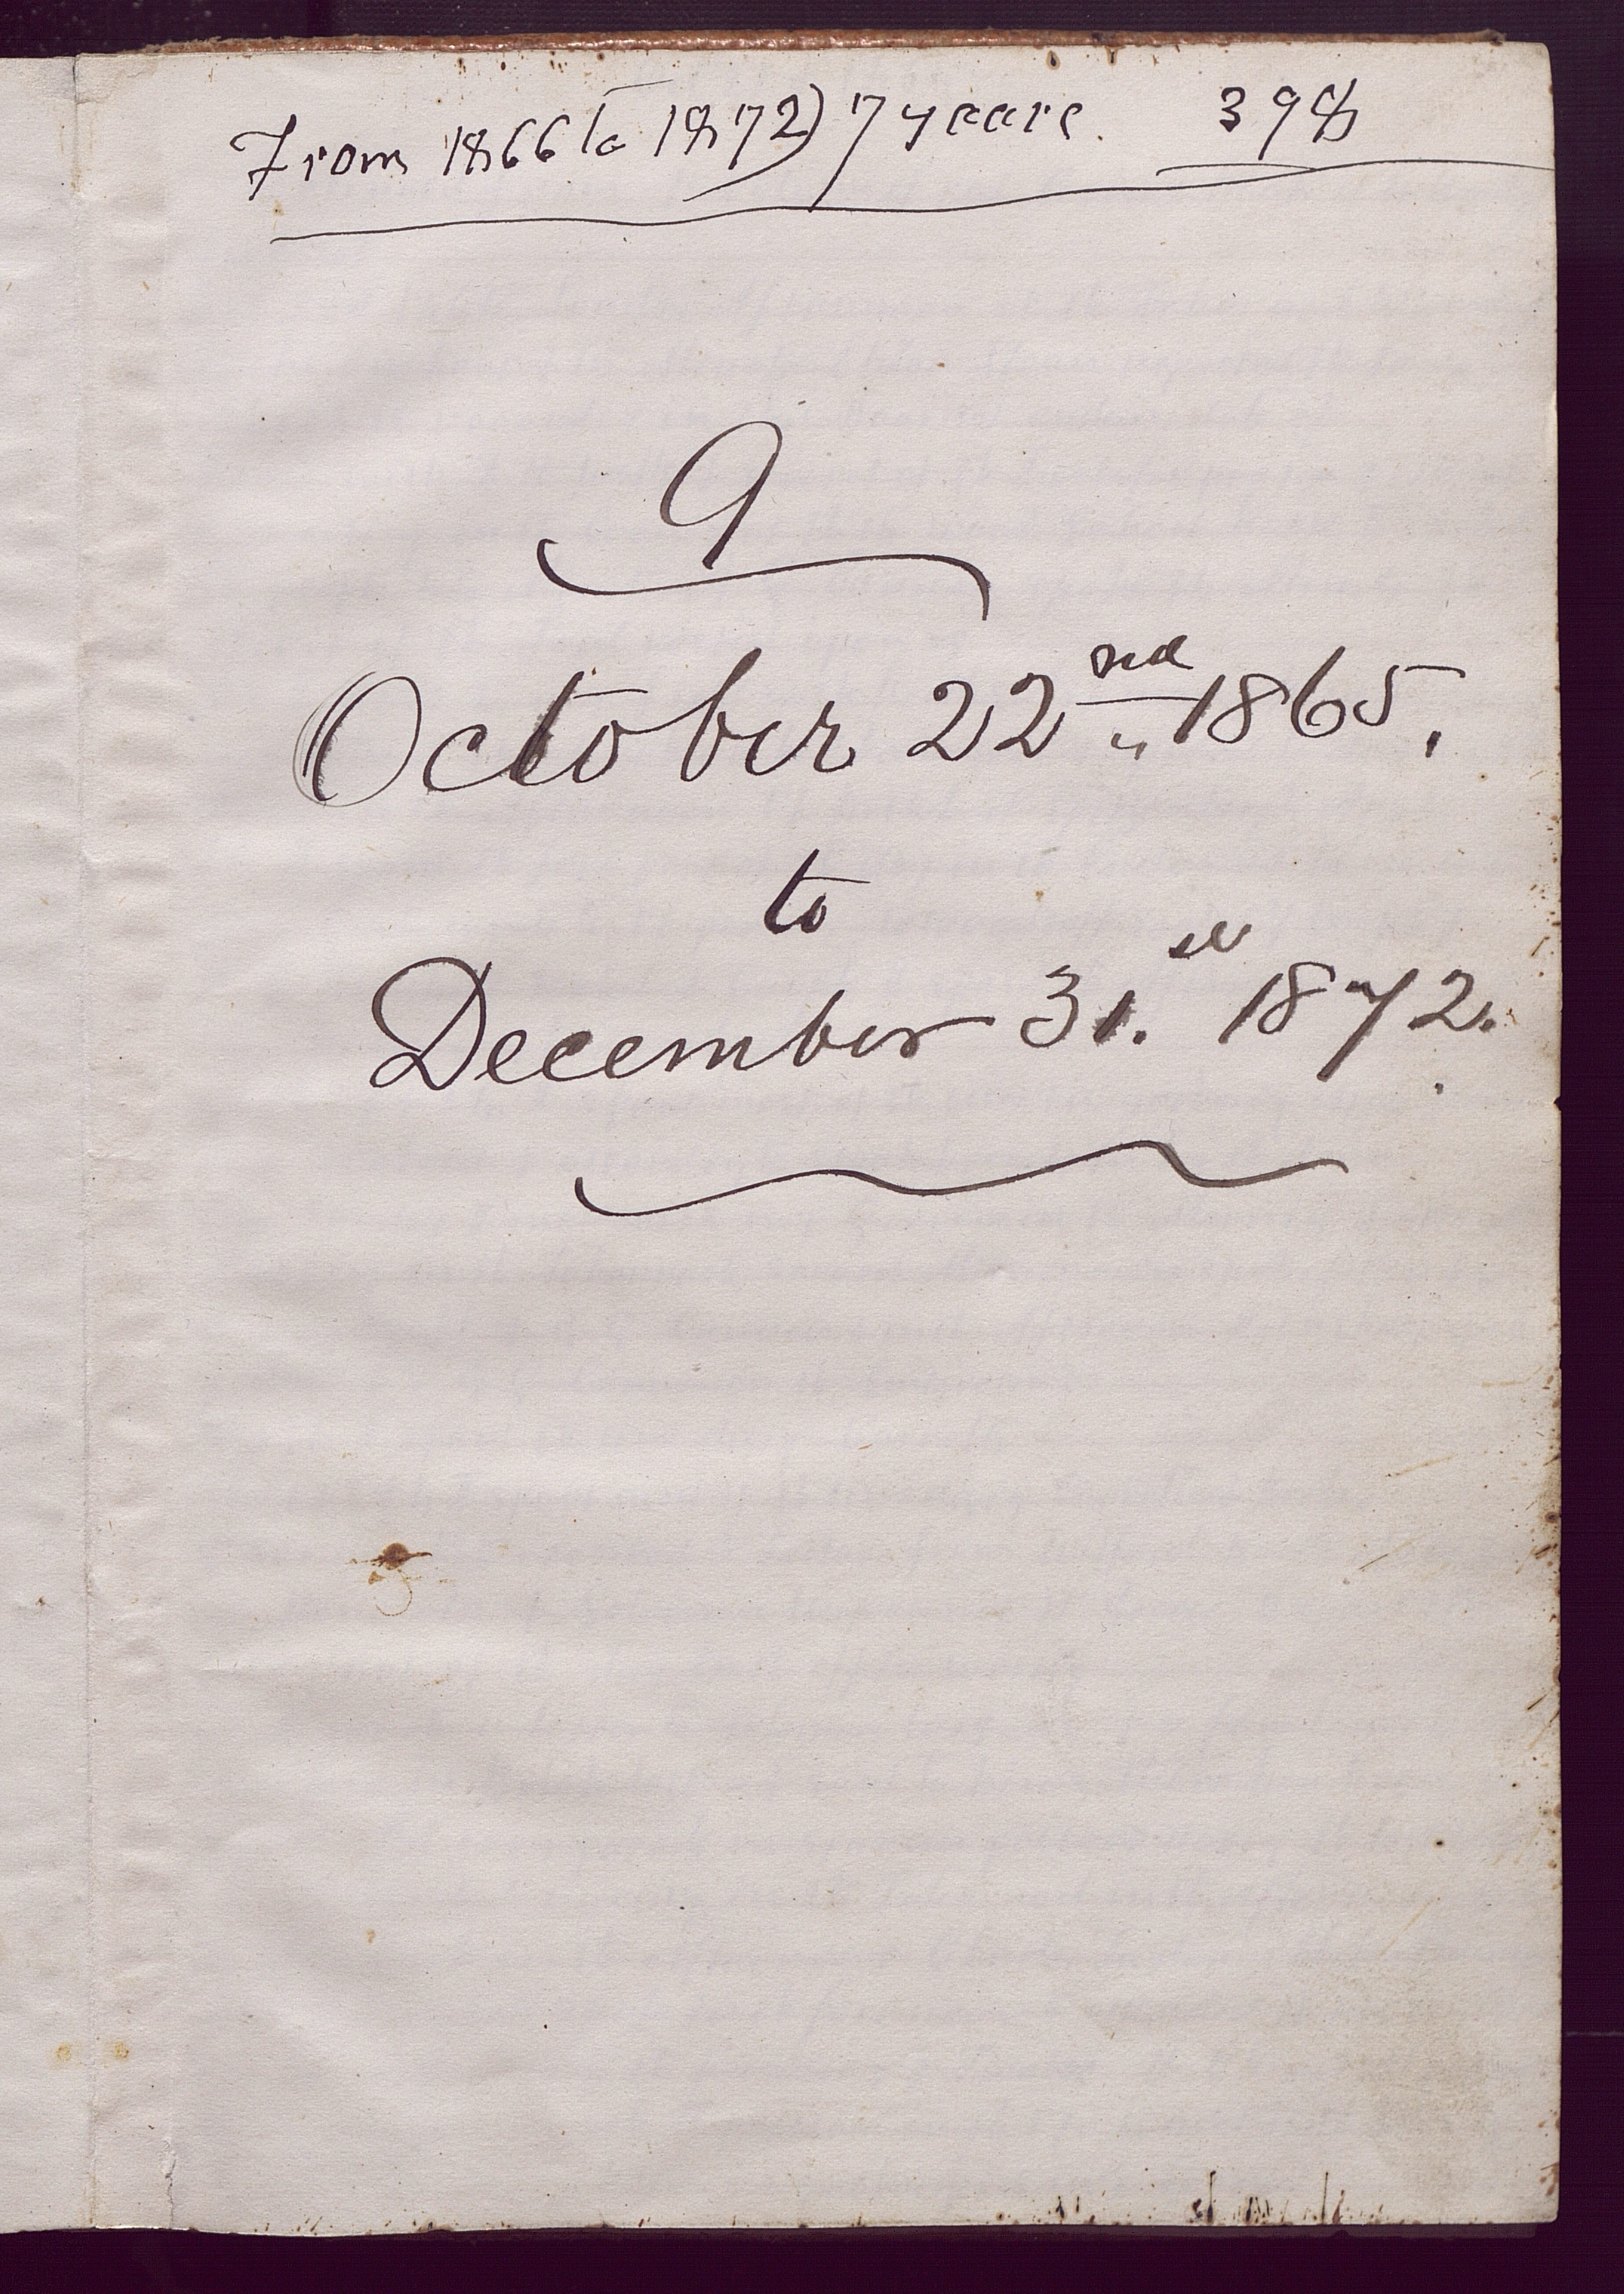 From 1866 to 1872) 7 years. 398
9
October 22nd 1865.
to
December 31.st 1872.